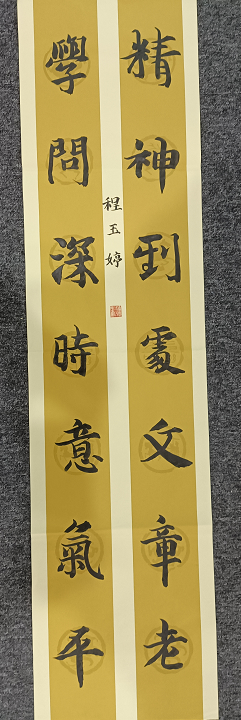 精神到處文章老
學問深時意氣平
程玉婷